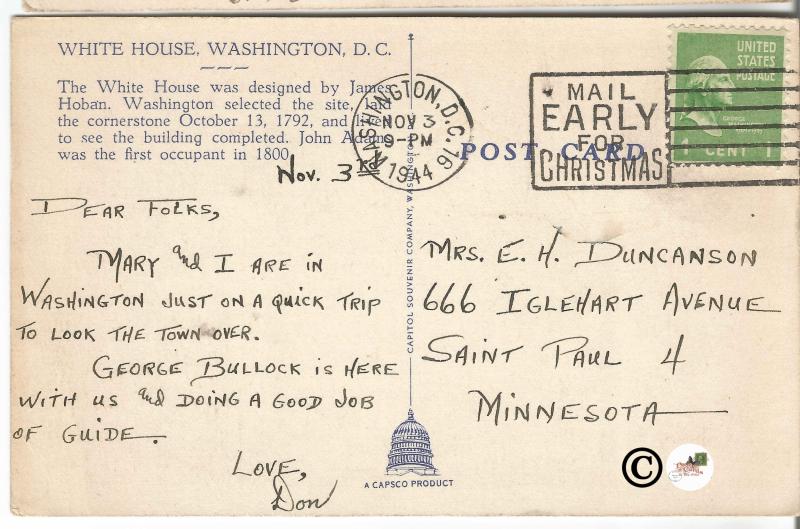 WHITE HOUSE, WASHINGTON, D. C.
The White House was designed by James
Hoban. Washington selected the site, laid
the cornerstone October 13, 1792, and lived
to see the building completed. John Adams
was the first occupant in 1800.
WASHINGTON, D.C. 16
NOV 3
9-PM
1944
MAIL
EARLY
FOR
CHRISTMAS
UNITED
STATES
POSTAGE
GEORGE WASHINGTON
1 CENT 1
POST CARD
Nov. 3rd
DEAR FOLKS,
MARY and I ARE IN
WASHINGTON JUST ON A QUICK TRIP
TO LOOK THE TOWN OVER.
GEORGE BULLOCK IS HERE
WITH US and DOING A GOOD JOB
OF GUIDE.
LOVE,
Don
CAPITOL SOUVENIR COMPANY, WASHINGTON
MRS. E. H. DUNCANSON
666 IGLEHART AVENUE
SAINT PAUL 4
MINNESOTA
A CAPSCO PRODUCT
©